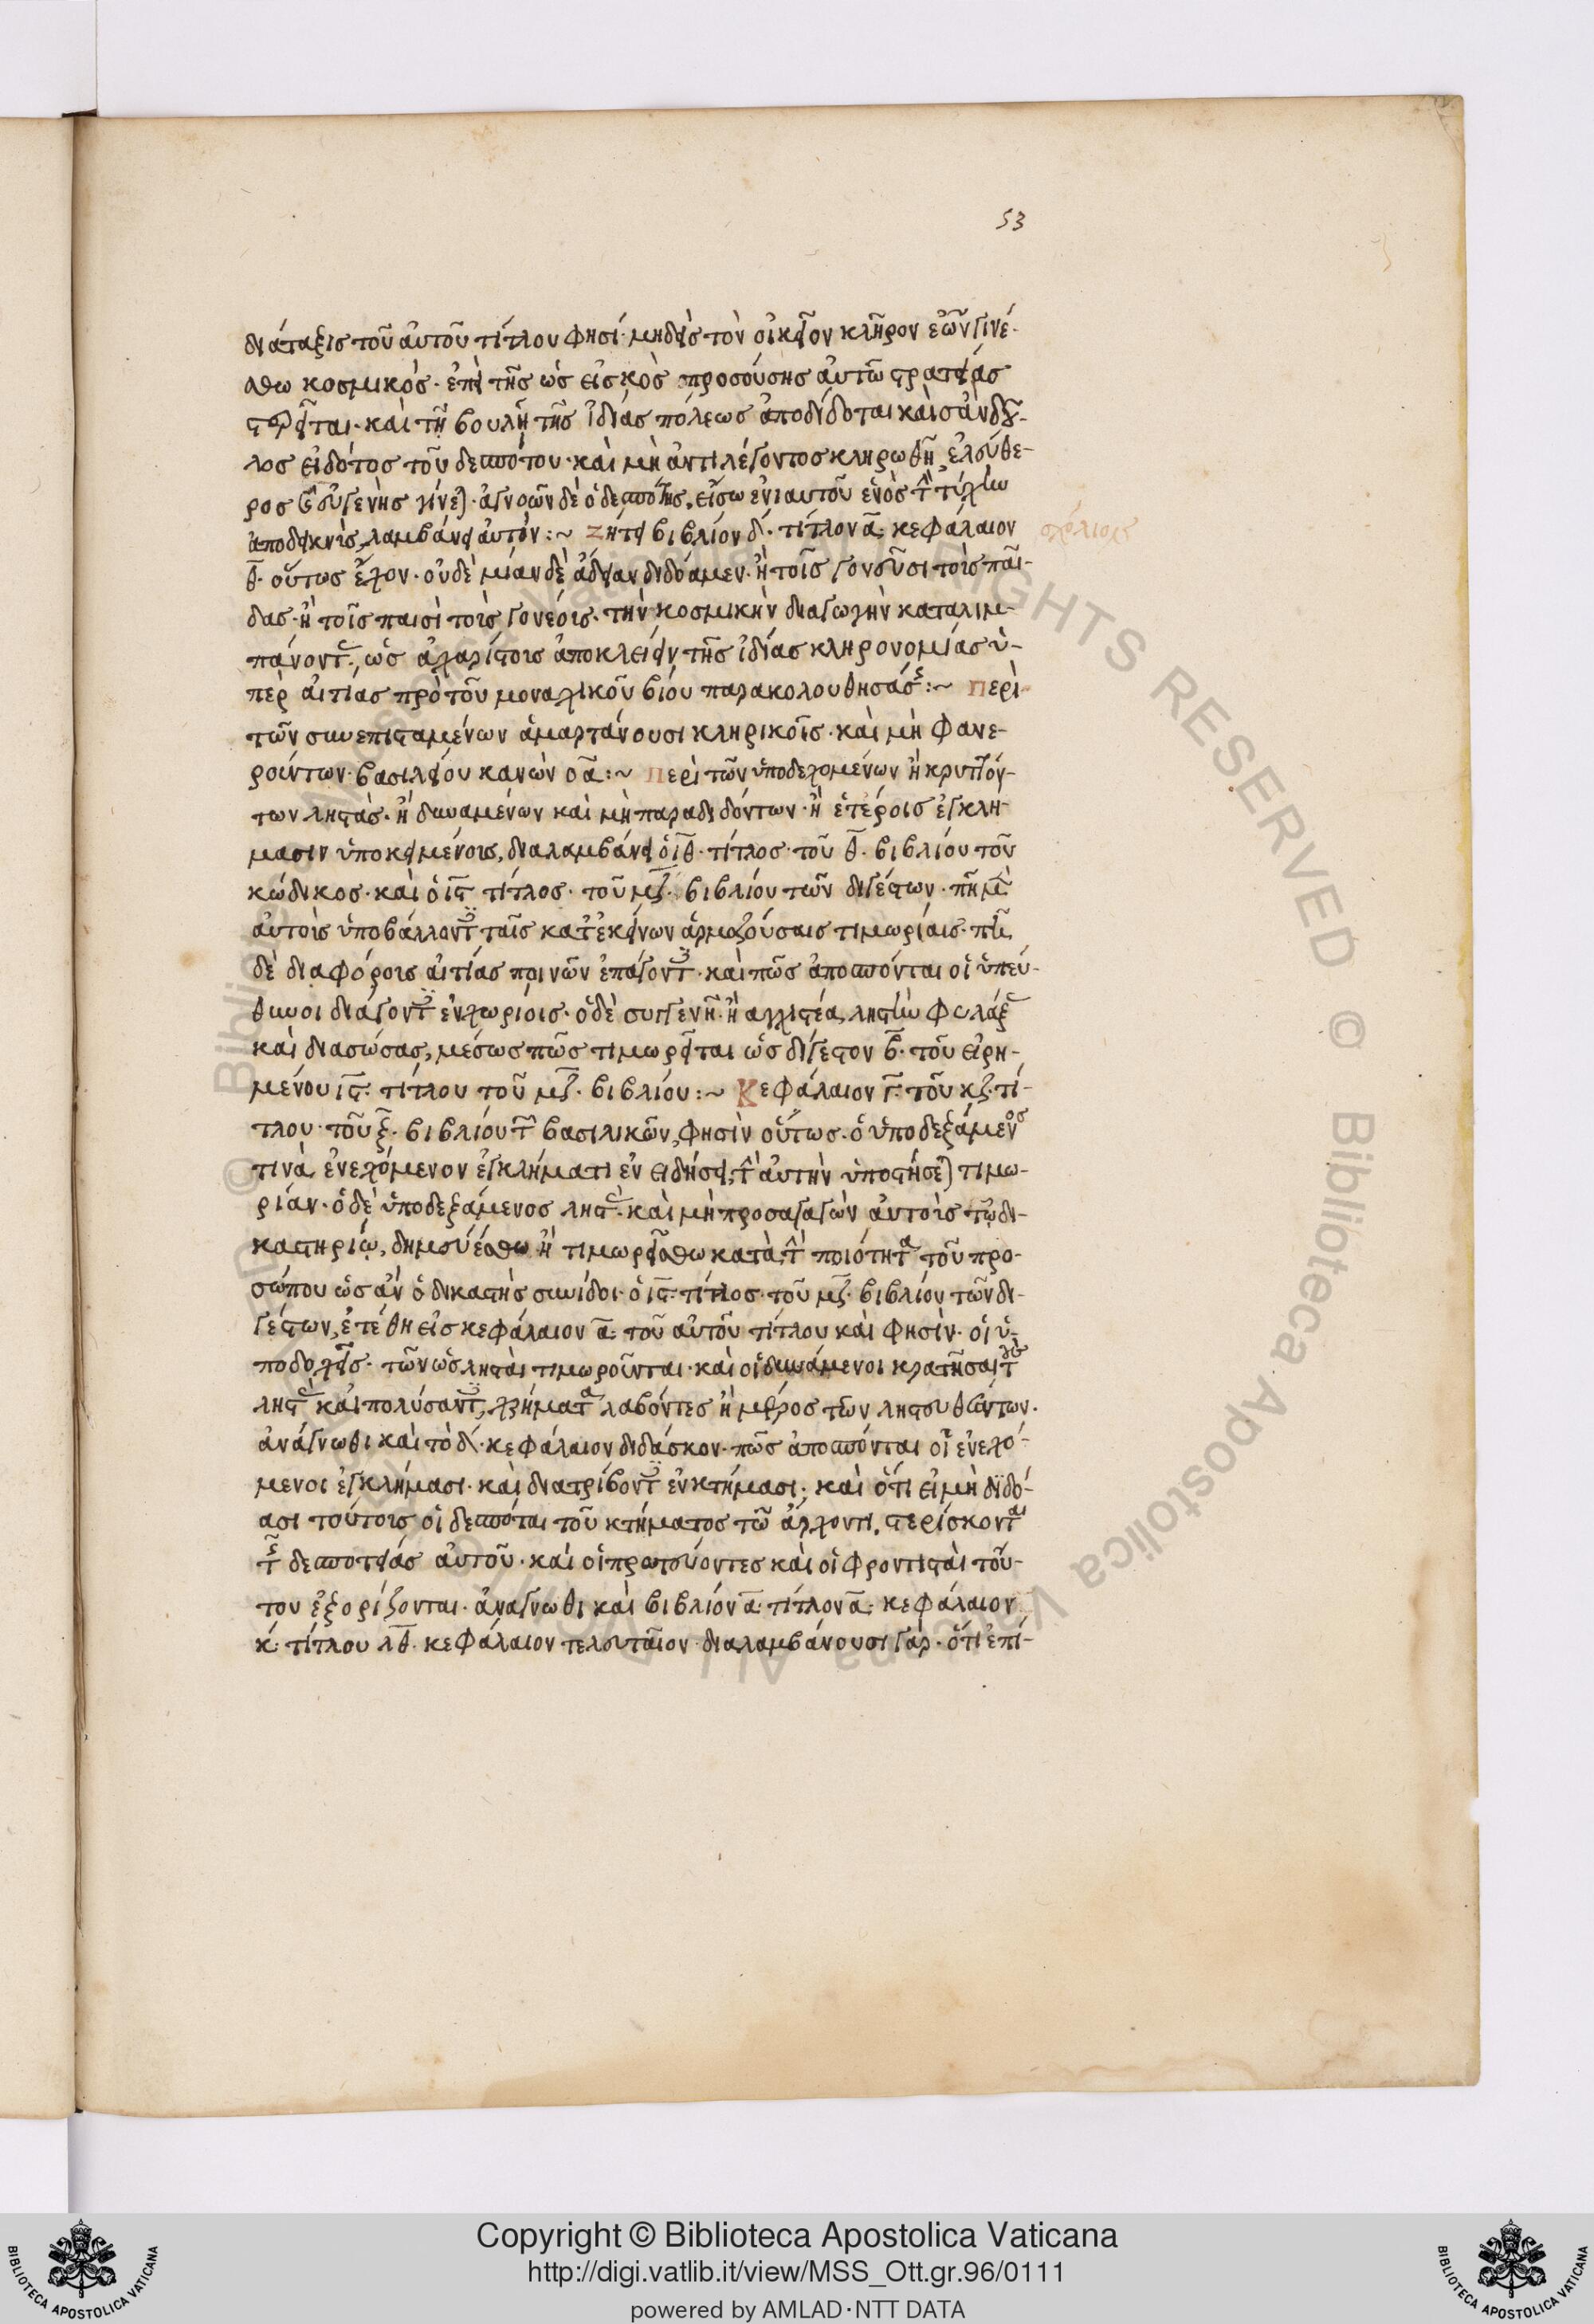 53
διάταξις τοῦ αὐτοῦ τίτλου φησί· μηδεὶς τὸν οἰκεῖον κλῆρον ἐῶν γινέ-
σθω κοσμικός· ἐπεὶ τῆς ὡς εἰκὸς προσούσης αὐτῶ στρατείας
στερεῖται· καὶ τῆ βουλῆ τῆς ἰδίας πόλεως ἀποδίδοται καὶ ἐὰν δοῦ-
λος εἰδότος τοῦ δεσπότου· καὶ μὴ ἀντιλέγοντος κληρωθῆ ἐλεύθε-
ρος καὶ εὐγενὴς γίνεται· ἀγνοῶν δὲ ὁ δεσπότης, εἴσω ἐνιαυτοῦ ἑνὸς τὴν τύχην
ἀποδεικνὺς, λαμβάνει αὐτόν:~ Ζήτει βιβλίον δ΄· τίτλον α΄· κεφάλαιον
σχόλιον
θ΄· οὕτως ἔχον· οὐδὲ μίαν δὲ ἄδειαν διδόαμεν· ἢ τοῖς γονεῦσι τοὺς παῖ-
δας· ἢ τοῖς παισὶ τοὺς γονεῖς· τὴν κοσμικὴν διαγωγὴν καταλιμ-
πάνοντας, ὡς ἀχαρίστους ἀποκλείειν τῆς ἰδίας κληρονομίας ὑ-
πὲρ αἰτίας πρὸ τοῦ μοναχικοῦ βίου παρακολουθησάσης:~ Περὶ
τῶν συνεπισταμένων ἁμαρτάνουσι κληρικοῖς· καὶ μὴ φανε-
ρούντων· βασιλείου κανὼν οα΄:~ Περὶ τῶν ὑποδεχομένων ἢ κρυπτόν-
των ληστάς· ἢ δυναμένων καὶ μὴ παραδιδόντων· ἢ ἑτέροις ἐγκλή-
μασιν ὑποκειμένους, διαλαμβάνει ὁ ιθ΄· τίτλος· τοῦ θ΄· βιβλίου τοῦ
κώδικος· καὶ ὁ ις΄ τίτλος· τοῦ μζ΄· βιβλίου τῶν διγέστων· πῆ μὲν
αὐτοὺς ὑποβάλλοντες ταῖς κατ' ἐκείνων ἁρμοζούσαις τιμωρίαις· πῆ
δὲ διαφόρους αἰτίας ποινῶν ἐπάγοντες· καὶ πῶς ἀποσπῶνται οἱ ὑπεύ-
θυνοι διάγοντες ἐν χωρίοις· ὁ δὲ συγγενῆ· ἢ ἀγχιστέα, ληστὴν φυλάξας
καὶ διασώσας, μέσως πῶς τιμωρεῖται ὡς δίγεστον β΄· τοῦ εἰρη-
μένου ις΄· τίτλου τοῦ μζ΄· βιβλίου:~ Κεφάλαιον γ΄· τοῦ κζ΄· τί-
τλου· τοῦ ξ΄· βιβλίου τῶν βασιλικῶν, φησὶν οὕτως· ὁ ὑποδεξάμενος
τινὰ ἐνεχόμενον ἐγκλήματι ἐν εἰδήσει, τὴν αὐτὴν ὑποστήσεται τιμω-
ρίαν· ὁ δὲ ὑποδεξάμενος ληστὰς· καὶ μὴ προσαγαγὼν αὐτοὺς τῷ δι-
καστηρίῳ, δημευέσθω ἢ τιμωρείσθω κατὰ τὴν ποιότητα τοῦ προ-
σώπου ὡς ἂν ὁ δικαστὴς συνίδοι· ὁ ις΄· τίτλος· τοῦ μζ΄· βιβλίου τῶν δι-
γέστων, ἐτέθη εἰς κεφάλαιον α΄· τοῦ αὐτοῦ τίτλου καὶ φησίν· οἱ ὑ-
ποδοχεῖς· τῶν ὡς λησταὶ τιμωροῦνται· καὶ οἱ δυνάμενοι κρατῆσαι τοὺς
ληστὰς καὶ ἀπολύσαντες, χρήματα λαβόντες ἢ μέρος τῶν ληστευθέντων·
ἀνάγνωθι καὶ τὸ δ΄· κεφάλαιον διδάσκον· πῶς ἀποσπῶνται οἱ ἐνεχό-
μενοι ἐγκλήμασι· καὶ διατρίβοντες ἐν κτήμασι· καὶ ὅτι εἰ μὴ διδό-
ασι τούτους οἱ δεσπόται τοῦ κτήματος τῶ ἄρχοντι, στερίσκονται
τῆς δεσποτείας αὐτοῦ· καὶ οἱ πρωτεύοντες καὶ οἱ φροντισταὶ τού-
του ἐξορίζονται· ἀνάγνωθι καὶ βιβλίον α΄· τίτλον α΄· κεφάλαιον
κ΄· τίτλου λθ΄· κεφάλαιον τελευταῖον διαλαμβάνουσι γάρ· ὅτι ἐπί-
Copyright © Biblioteca Apostolica Vaticana
http://digi.vatlib.it/view/MSS_Ott.gr.96/0111
powered by AMLAD·NTT DATA